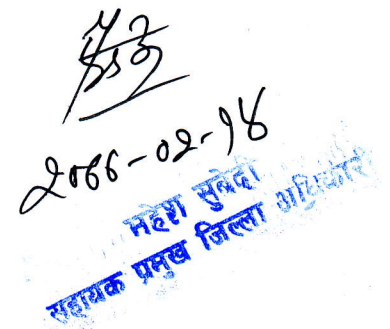 २०६६-०२-१४
महेश सुवेदी
सहायक प्रमुख जिल्ला अधिकारी